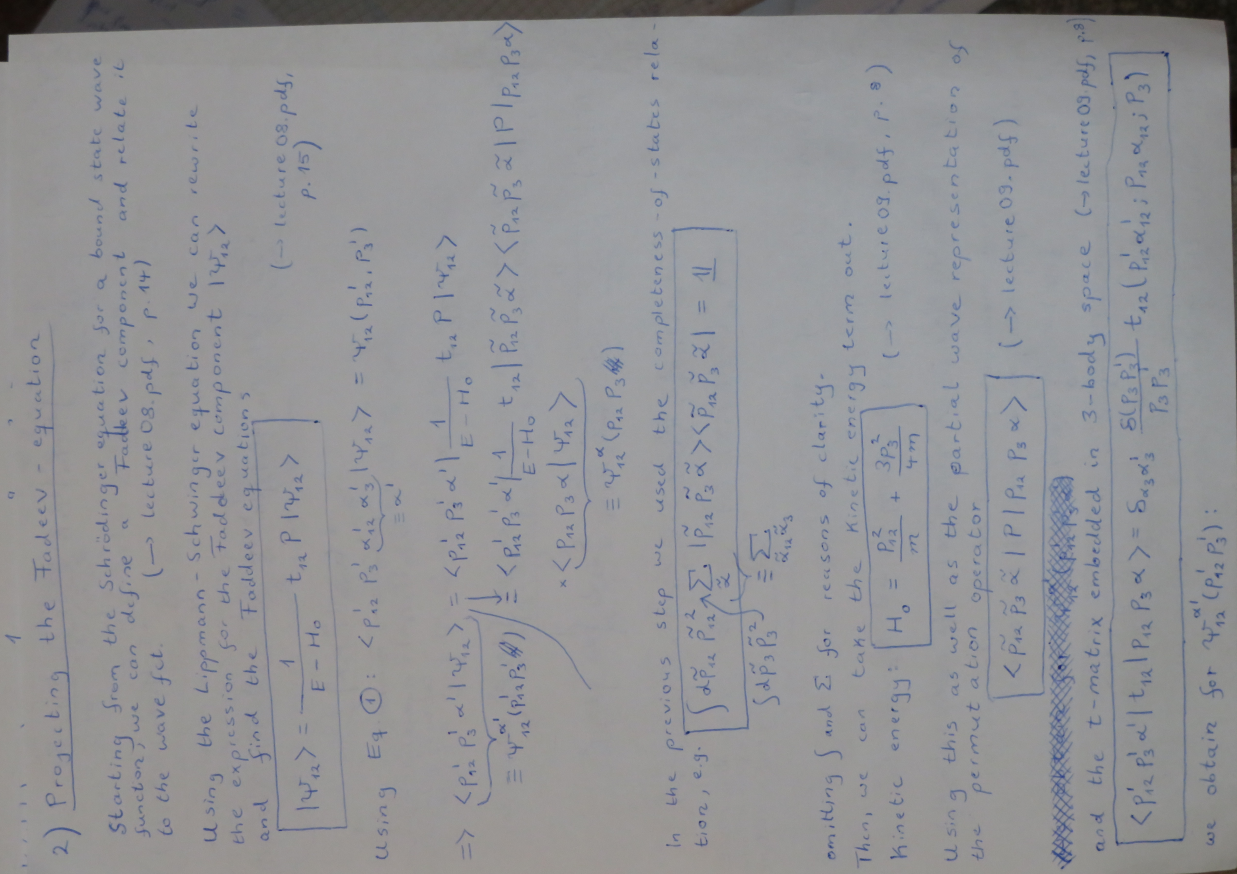 2) Projecting the Fadeev-equation
Starting from the Schrödinger equation for a bound state wave
function, we can define a Faddeev component and relate it
to the wave fct. (→ lecture 08.pdf, p. 14)
Using the Lippmann-Schwinger equation we can rewrite
the expression for the Faddeev component |Ψ₁₂>
and find the Faddeev equations (→ lecture 08.pdf,
p. 15)
|Ψ₁₂> = 1/(E - H₀) t₁₂ P |Ψ₁₂>
Using Eq ①: <p'₁₂ p'₃ α'₁₂ α'₃ |Ψ₁₂> = Ψ₁₂(p'₁₂, p'₃)
≡ α'
=> <p'₁₂ p'₃ α' |Ψ₁₂> = <p'₁₂ p'₃ α'| 1/(E - H₀) t₁₂ P |Ψ₁₂>
≡ Ψ₁₂^α' (p'₁₂ p'₃) = <p'₁₂ p'₃ α'| 1/(E - H₀) t₁₂ | p̃₁₂ p̃₃ α̃ > < p̃₁₂ p̃₃ α̃ | P | p₁₂ p₃ α >
× < p₁₂ p₃ α | Ψ₁₂ >
≡ Ψ₁₂^α (p₁₂ p₃)
In the previous step we used the completeness-of-states rela-
tion, e.g. ∫ dp̃₁₂ p̃₁₂² Σ_α̃ | p̃₁₂ p̃₃ α̃ > < p̃₁₂ p̃₃ α̃ | = 𝟙
∫ dp̃₃ p̃₃² ≡ Σ_α̃₁₂ α̃₃
omitting ∫ and Σ for reasons of clarity.
Then, we can take the kinetic energy term out.
Kinetic energy: H₀ = p₁₂²/m + 3p₃²/4m (→ lecture 09.pdf, p. 8)
Using this as well as the partial wave representation of
the permutation operator
< p̃₁₂ p̃₃ α̃ | P | p₁₂ p₃ α > (→ lecture 09.pdf)
and the t-matrix embedded in 3-body space (→ lecture 09.pdf, p.8)
< p'₁₂ p'₃ α' | t₁₂ | p₁₂ p₃ α > = δ_α₃α'₃ δ(p₃ p'₃)/(p₃ p₃) t₁₂ (p'₁₂ α'₁₂; p₁₂ α₁₂; p₃)
we obtain for Ψ₁₂^α' (p'₁₂ p'₃):